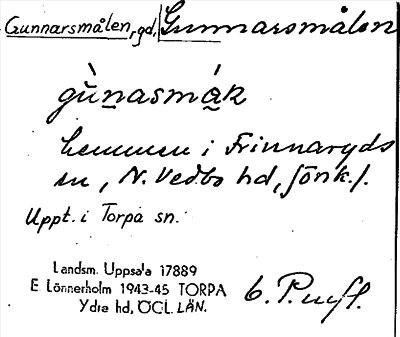 Gunnarsmålen, gd, Gunnarsmålen
gùnasmák
hemman i Frinnaryds
sn, N. Vedbo hd, Jönk. l.
Uppt. i Torpa sn.
Landsm. Uppsala 17889
E Lönnerholm 1943-45 TORPA
Ydre hd, ÖGL. LÄN.